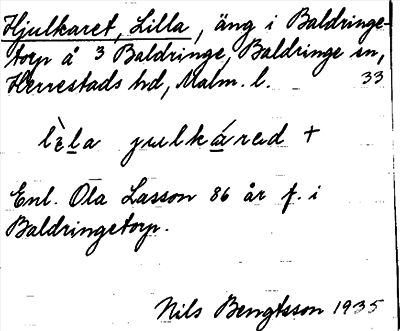 Hjulkaret, Lilla, äng i Baldringe-
torp å 3 Baldringe, Baldringe sn,
Herrestads hd, Malm. l. 33
lὲla julkáred +
Enl. Ola Lasson 86 år f. i
Baldringetorp.
Nils Bengtsson 1935